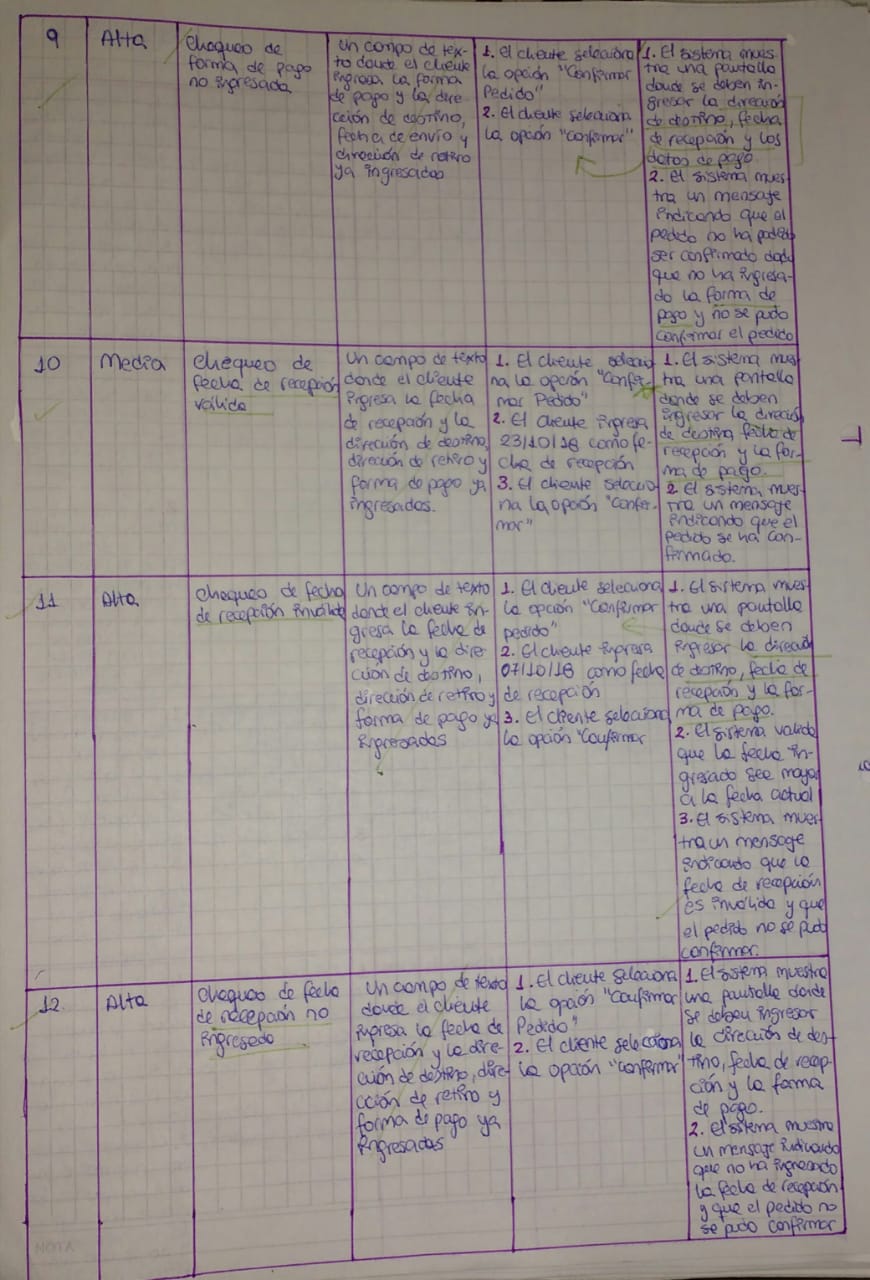 9
Alta
Chequeo de
forma de pago
no ingresada
Un campo de tex-
to donde el cliente
ingresa la forma
de pago y la dire-
cción de destino,
fecha de envío y
dirección de retiro
ya ingresados
1. El cliente selecciona
la opción "Confirmar
Pedido"
2. El cliente selecciona
la opción "Confirmar"
1. El sistema mues-
tra una pantalla
donde se deben in-
gresar la dirección
de destino, fecha
de recepción y los
datos de pago.
2. El sistema mues-
tra un mensaje
indicando que el
pedido no ha podido
ser confirmado dado
que no ha ingresa-
do la forma de
pago y no se pudo
confirmar el pedido
10
Media
Chequeo de
fecha de recepción
válida
Un campo de texto
donde el cliente
ingresa la fecha
de recepción y la
dirección de destino,
dirección de retiro y
forma de pago ya
ingresados.
1. El cliente seleccio
na la opción "Confir-
mar Pedido"
2. El cliente ingresa
23/10/18 como fe-
cha de recepción
3. El cliente seleccio
na la opción "Confir-
mar"
1. El sistema mues
tra una pantalla
donde se deben
ingresar la direcció
de destino, fecha de
recepción y la for-
ma de pago.
2. El sistema mues-
tra un mensaje
indicando que el
pedido se ha con-
firmado.
11
Alta
Chequeo de fecha
de recepción inválida
Un campo de texto
donde el cliente in-
gresa la fecha de
recepción y la dire-
cción de destino,
dirección de retiro y
forma de pago ya
ingresados
1. El cliente selecciona
la opción "Confirmar
pedido"
2. El cliente ingresa
07/10/18 como fecha
de recepción
3. El cliente selecciona
la opción "Confirmar
1. El sistema mues-
tra una pantalla
donde se deben
ingresar la direcció
de destino, fecha de
recepción y la for-
ma de pago.
2. El sistema valida
que la fecha in-
gresada sea mayor
a la fecha actual
3. El sistema mues-
tra un mensaje
indicando que la
fecha de recepción
es inválida y que
el pedido no se pudo
confirmar.
12
Alta
Chequeo de fecha
de recepción no
ingresada
Un campo de texto
donde el cliente
ingresa la fecha de
recepción y la dire-
cción de destino, dire-
cción de retiro y
forma de pago ya
ingresados
1. El cliente selecciona
la opción "Confirmar
Pedido"
2. El cliente selecciona
la opción "Confirmar"
1. El sistema muestra
una pantalla donde
se deben ingresar
la dirección de des-
tino, fecha de recep-
ción y la forma
de pago.
2. El sistema muestra
un mensaje indicando
que no ha ingresado
la fecha de recepción
y que el pedido no
se pudo confirmar